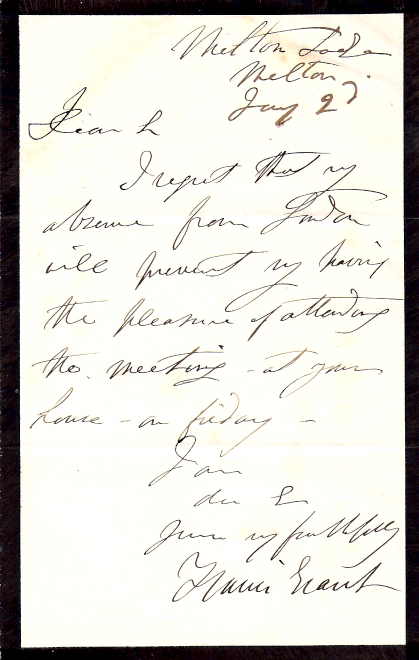 Melton Lodge
Melton.
Jany 2d
Dear Sr
I regret that my
absence from London
will prevent my having
the pleasure of attending
the meeting - at your
house - on friday -
I am
dear Sr
yours vy faithfully
Francis Grant